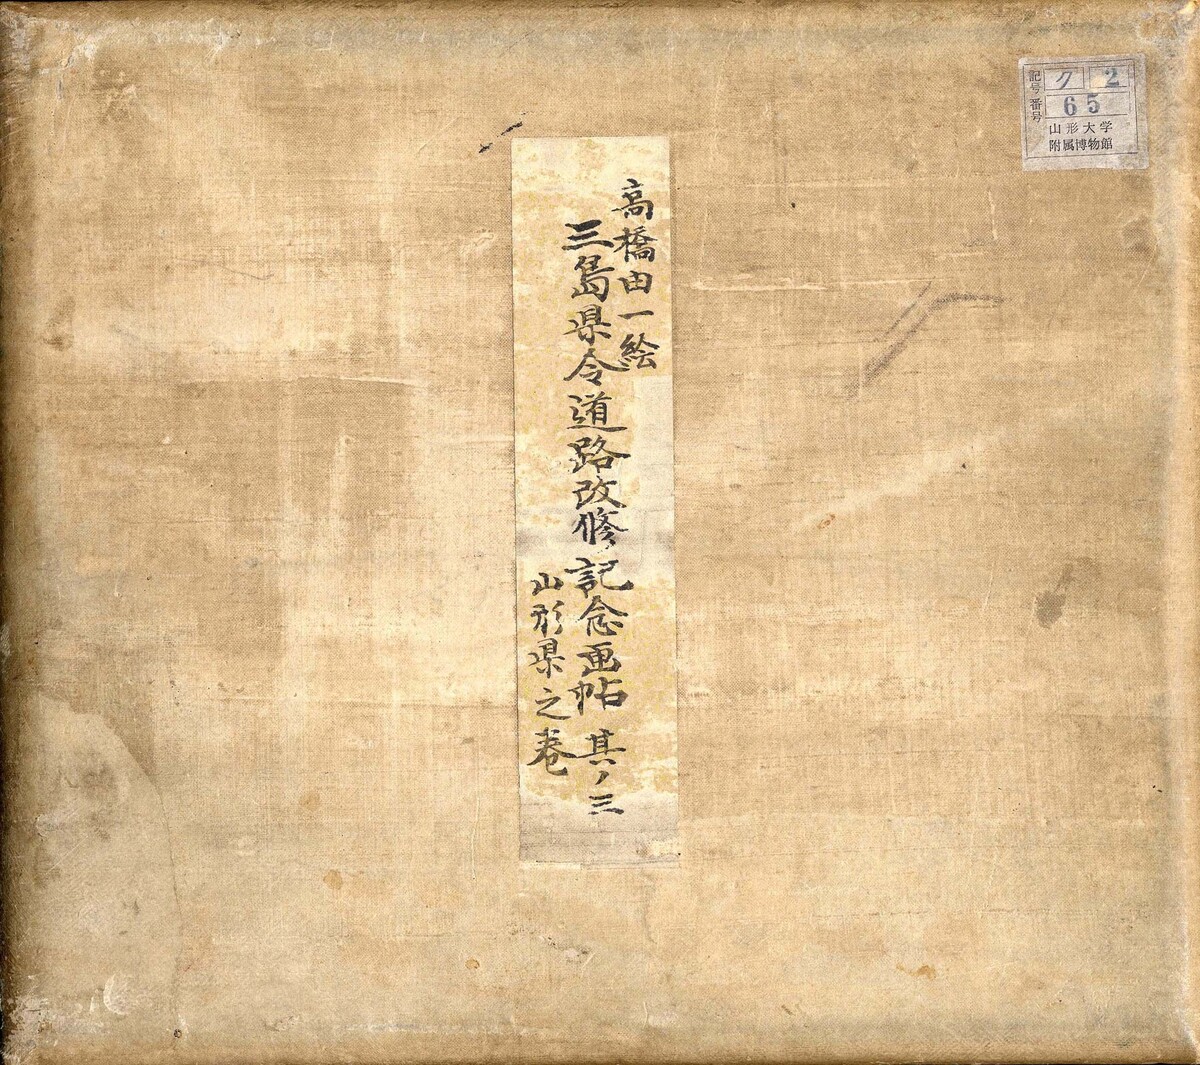 高橋由一絵
三島県令道路改修記念画帖 其ノ三
山形県之巻
記号 ク 2
番号 65
山形大学
附属博物館